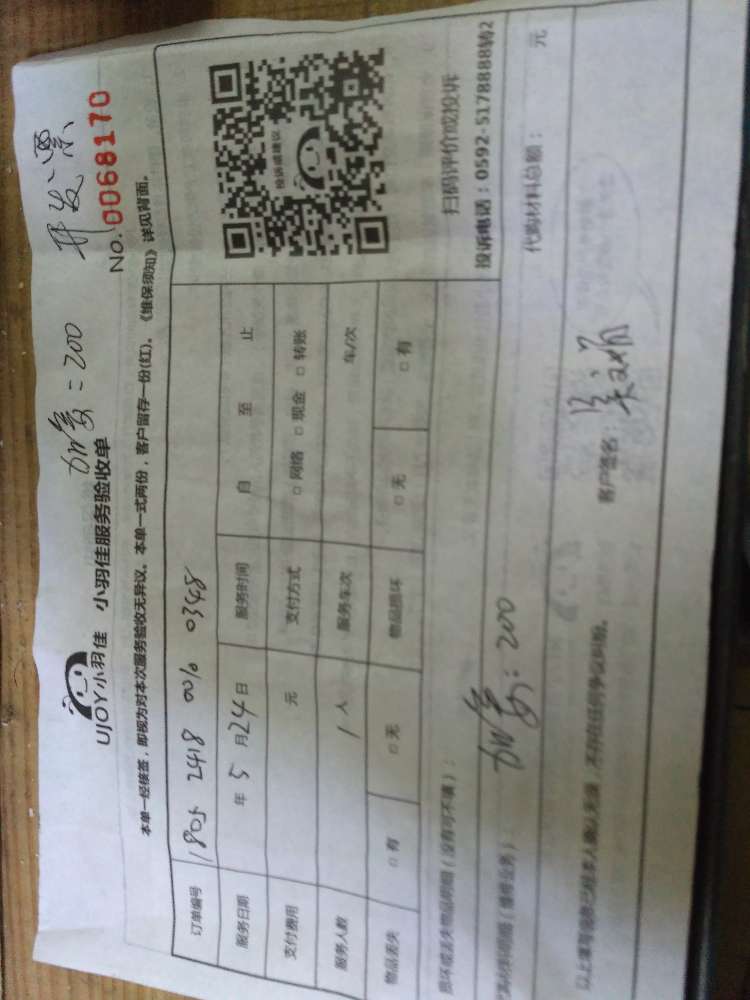 开发票
No. 0068170
加多：200
UJOY小羽佳 小羽佳服务验收单
本单一经核签，即视为对本次服务验收无异议。本单一式两份，客户留存一份(红)。《维保须知》详见背面。
订单编号 1805 2418 0010 0348
服务日期 年 5 月 24 日 服务时间 自 至 止
支付费用 元 支付方式 □ 网络 □ 现金 □ 转账
服务人数 1 人 服务车次 车/次
物品丢失 □ 有 □ 无 物品损坏 □ 无 □ 有
投诉或建议
扫码评价或投诉
投诉电话：0592-5178888转2
损坏或丢失物品明细（没有可不填）：
代购材料明细（维修业务）： ：200 代购材料总额： 元
以上填写信息已经本人确认无误，不存在任何争议纠纷。 客户签名：